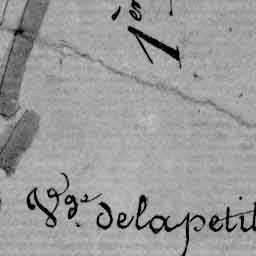 1er
Vge delapetit